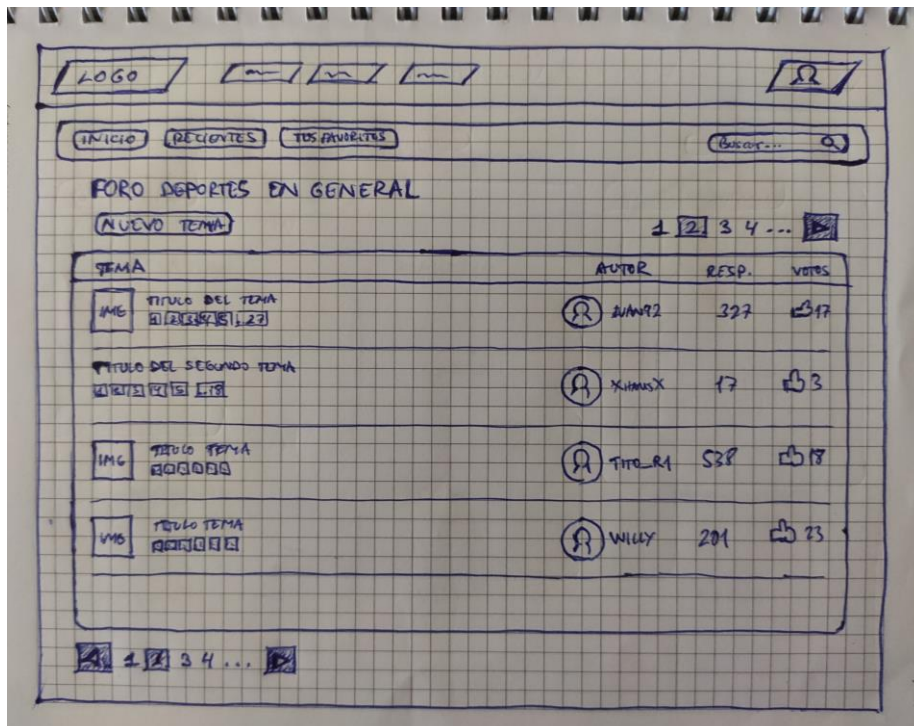 LOGO
INICIO RECIENTES TUS FAVORITOS Buscar...
FORO DEPORTES EN GENERAL
NUEVO TEMA 1 2 3 4 ...
TEMA AUTOR RESP. VOTOS
IMG TITULO DEL TEMA JUAN92 327 17
1 2 3 4 5 ... 27
TITULO DEL SEGUNDO TEMA XHANSX 17 3
1 2 3 4 5 ...18
IMG TITULO TEMA TITO_R1 538 18
IMG TITULO TEMA WILLY 201 23
1 2 3 4 ...